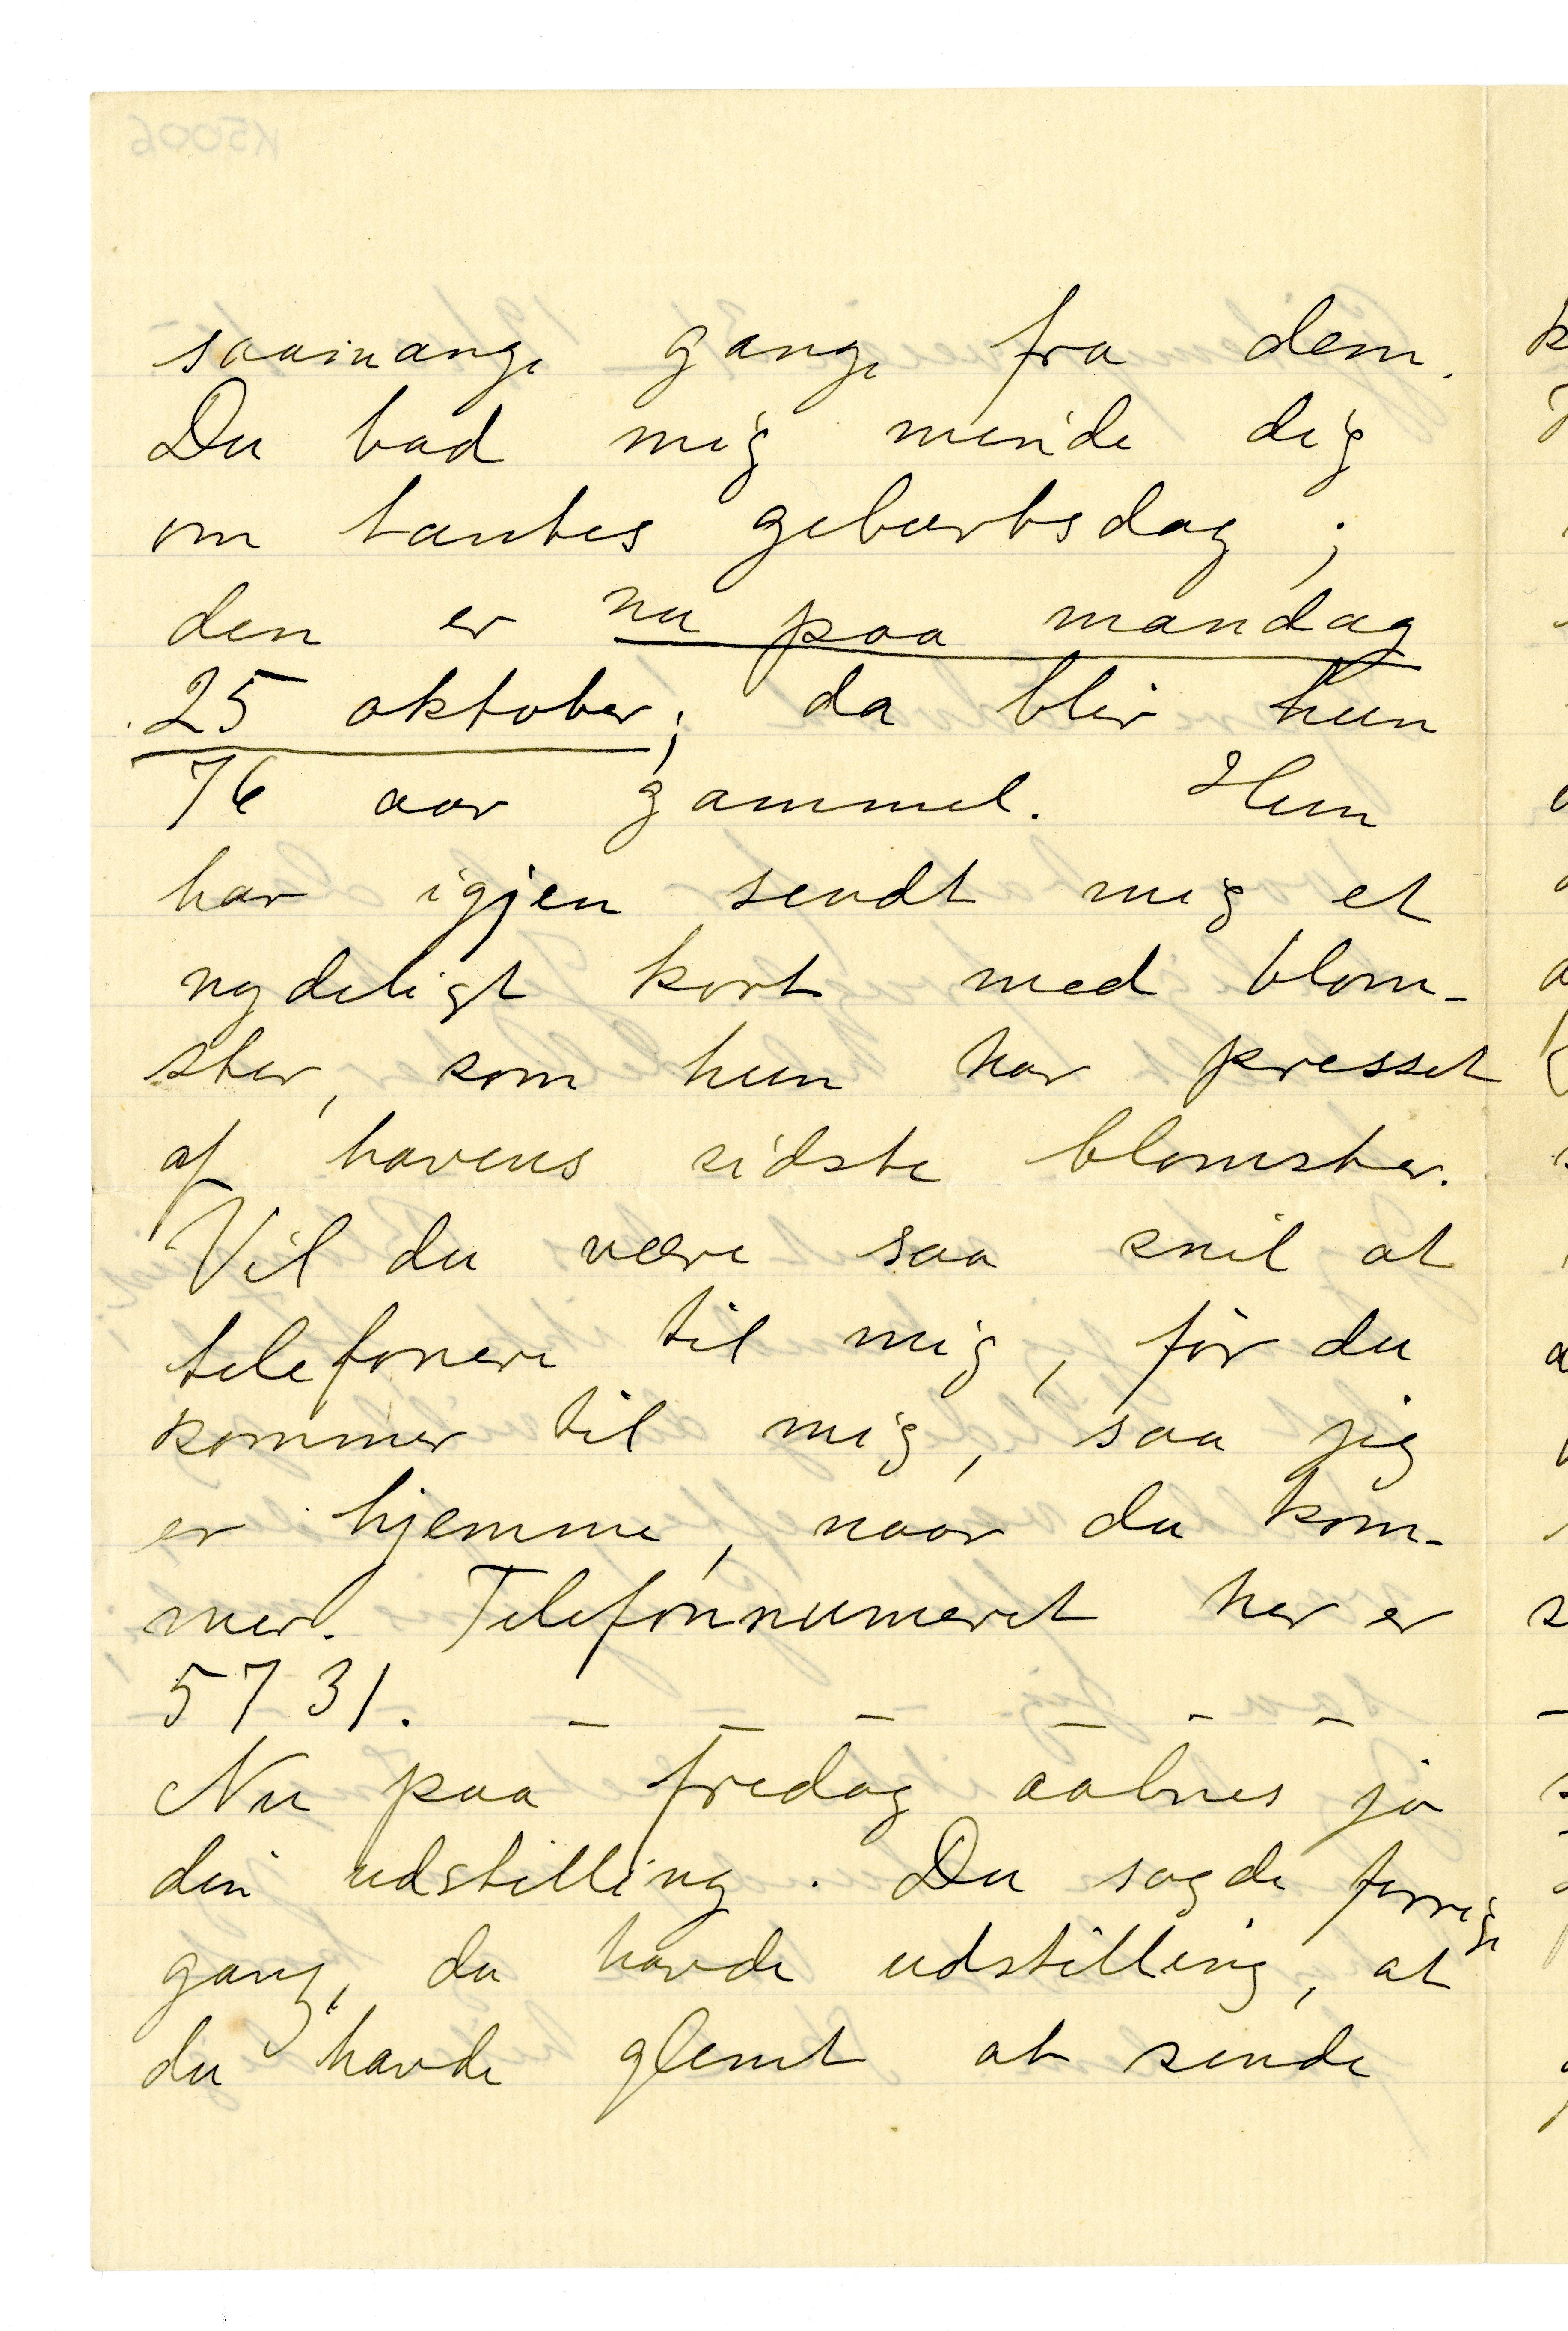 saamange gange fra dem.
Du bad mig minde dig
om tantes geburtsdag;
den er nu paa mandag
25 oktober; da blir hun
76 aar gammel. Hun
har igjen sendt mig et
nydeligt kort med blom-
ster, som hun har presset
af havens sidste blomster.
Vil du være saa snil at
telefonere til mig, før du
kommer til mig, saa jeg
er hjemme, naar du kom-
mer. Telefonnumeret her er
5731. – – – – – –
Nu paa fredag aabnes jo
din udstilling. Du sagde forrige
gang, du havde udstilling, at
du havde glemt at sende
K5006